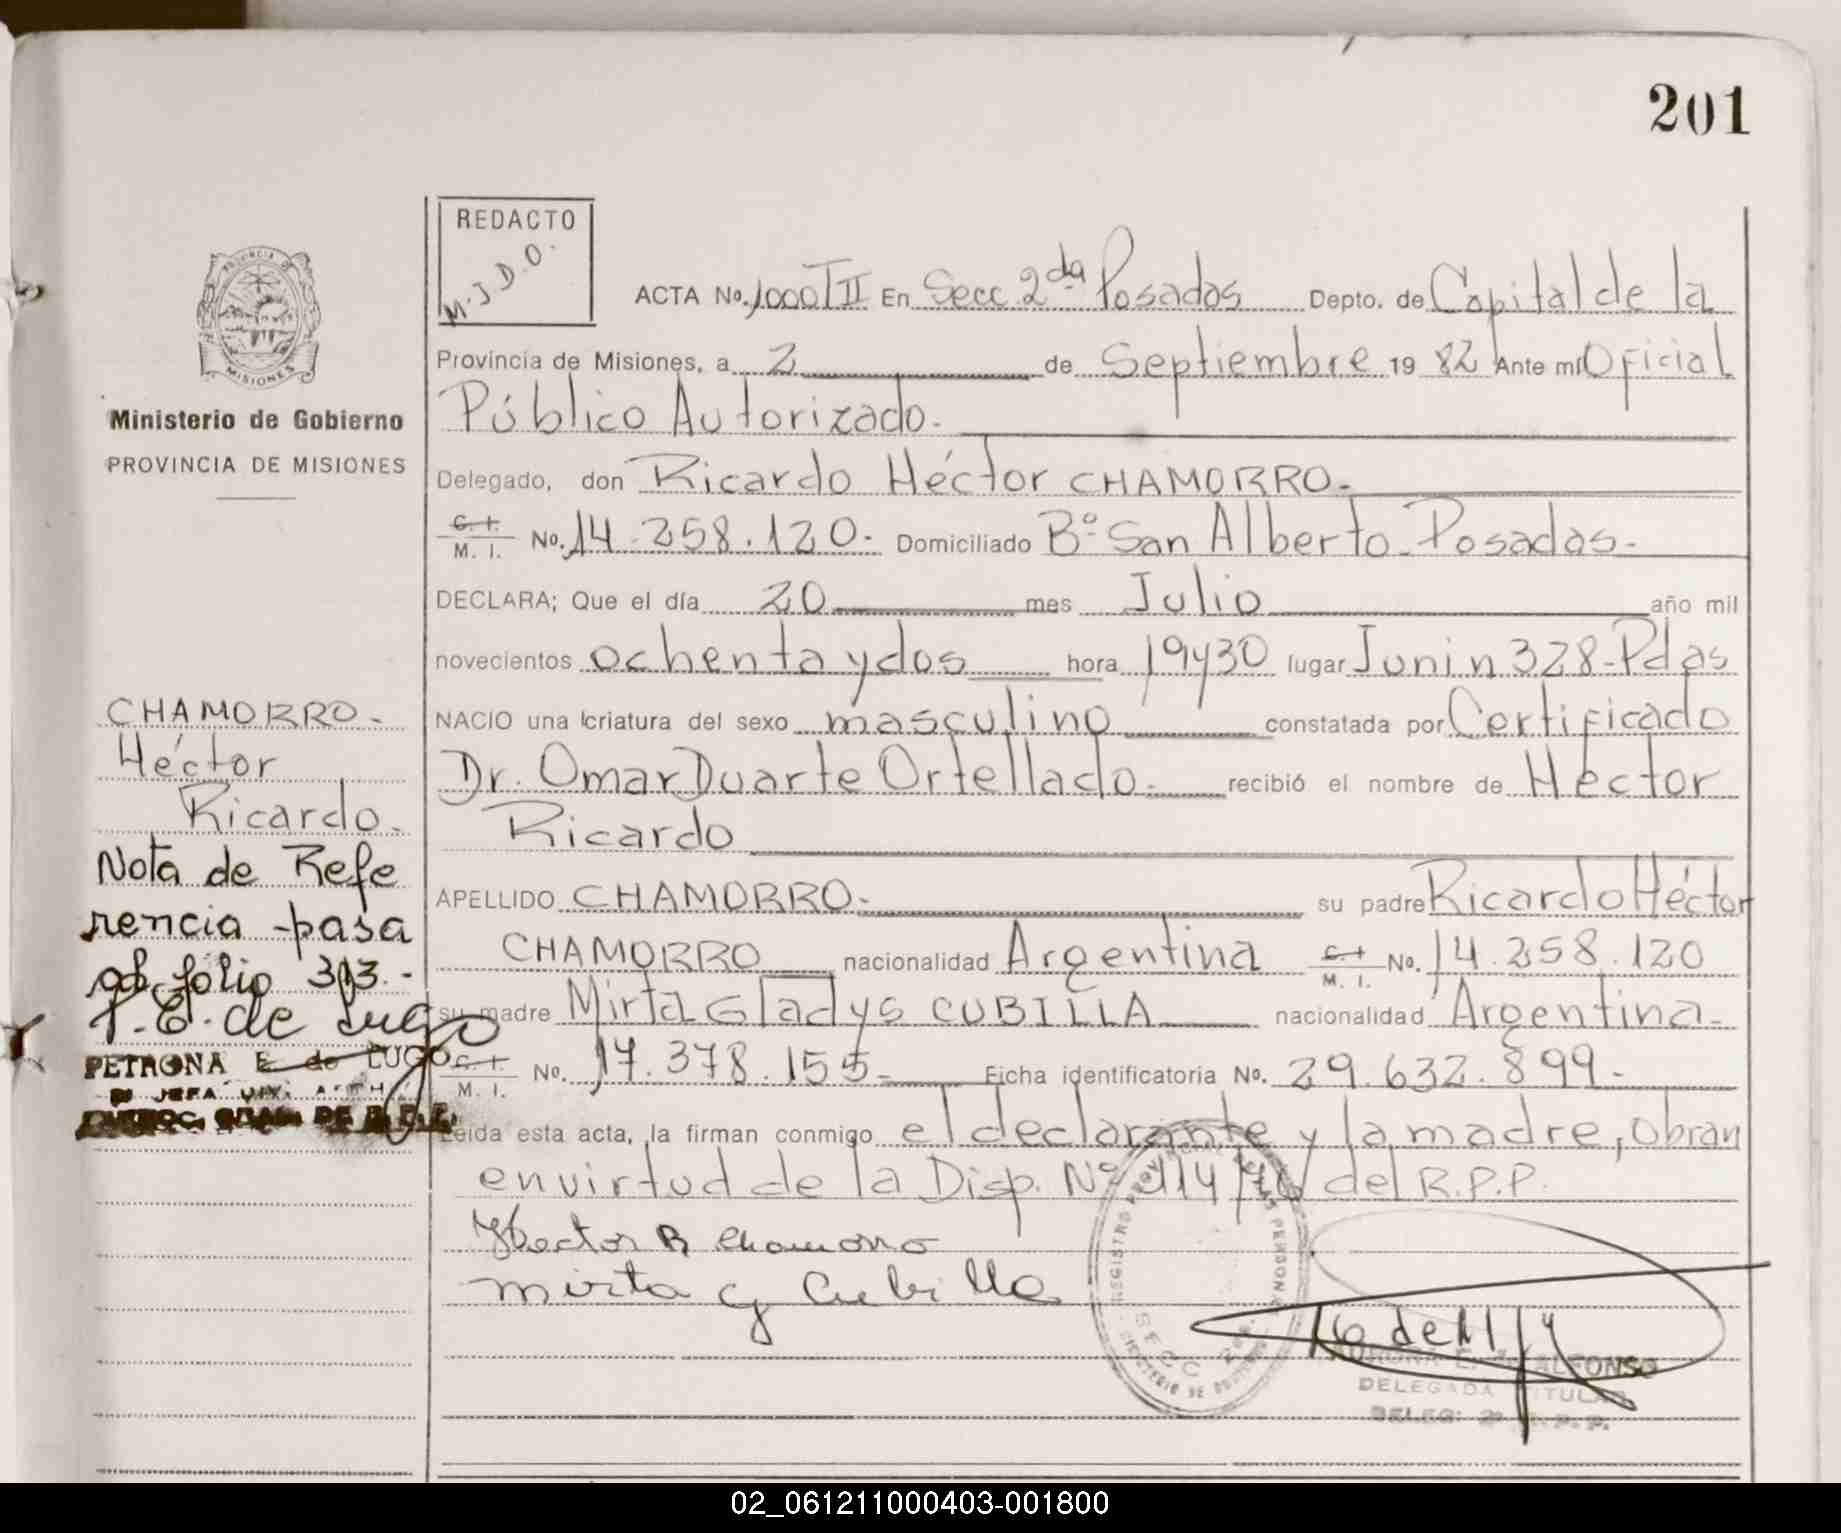 201
REDACTO
M.J.D.O.
PROVINCIA DE
MISIONES
Ministerio de Gobierno
PROVINCIA DE MISIONES
ACTA No. 1000TII En Secc 2da Posadas Depto. de Capital de la
Provincia de Misiones, a 2 de Septiembre 19 82 Ante mí Oficial
Público Autorizado.
Delegado, don Ricardo Héctor CHAMORRO.
C. I.
M. I. No. 14.258.120. Domiciliado Bº San Alberto. Posadas.
DECLARA; Que el día 20 mes Julio año mil
novecientos ochenta y dos hora 19y30 lugar Junin 328-Pdas
NACIO una criatura del sexo masculino constatada por Certificado
Dr. Omar Duarte Ortellado. recibió el nombre de Héctor
Ricardo
APELLIDO CHAMORRO. su padre Ricardo Héctor
CHAMORRO nacionalidad Argentina C. I. M. I. No. 14.258.120
su madre Mirta Gladys CUBILLA nacionalidad Argentina.
C. I.
M. I. No. 17.378.155. Ficha identificatoria No. 29.632.899.
Leída esta acta, la firman conmigo el declarante y la madre, Obran
en virtud de la Disp. Nº 114/ del R.P.P.
Hector R Chamorro
Mirta G Cubilla
CHAMORRO.
Héctor
Ricardo.
Nota de Refe
rencia pasa
al folio 313.-
P. E. de Lugo
PETRONA E. de LUGO
REGISTRO PROVINCIAL DE LAS PERSONAS
SECC 2da
ALFONSO
DELEGADA TITULAR
DELEG. 2ª R. P. P.
02_061211000403-001800